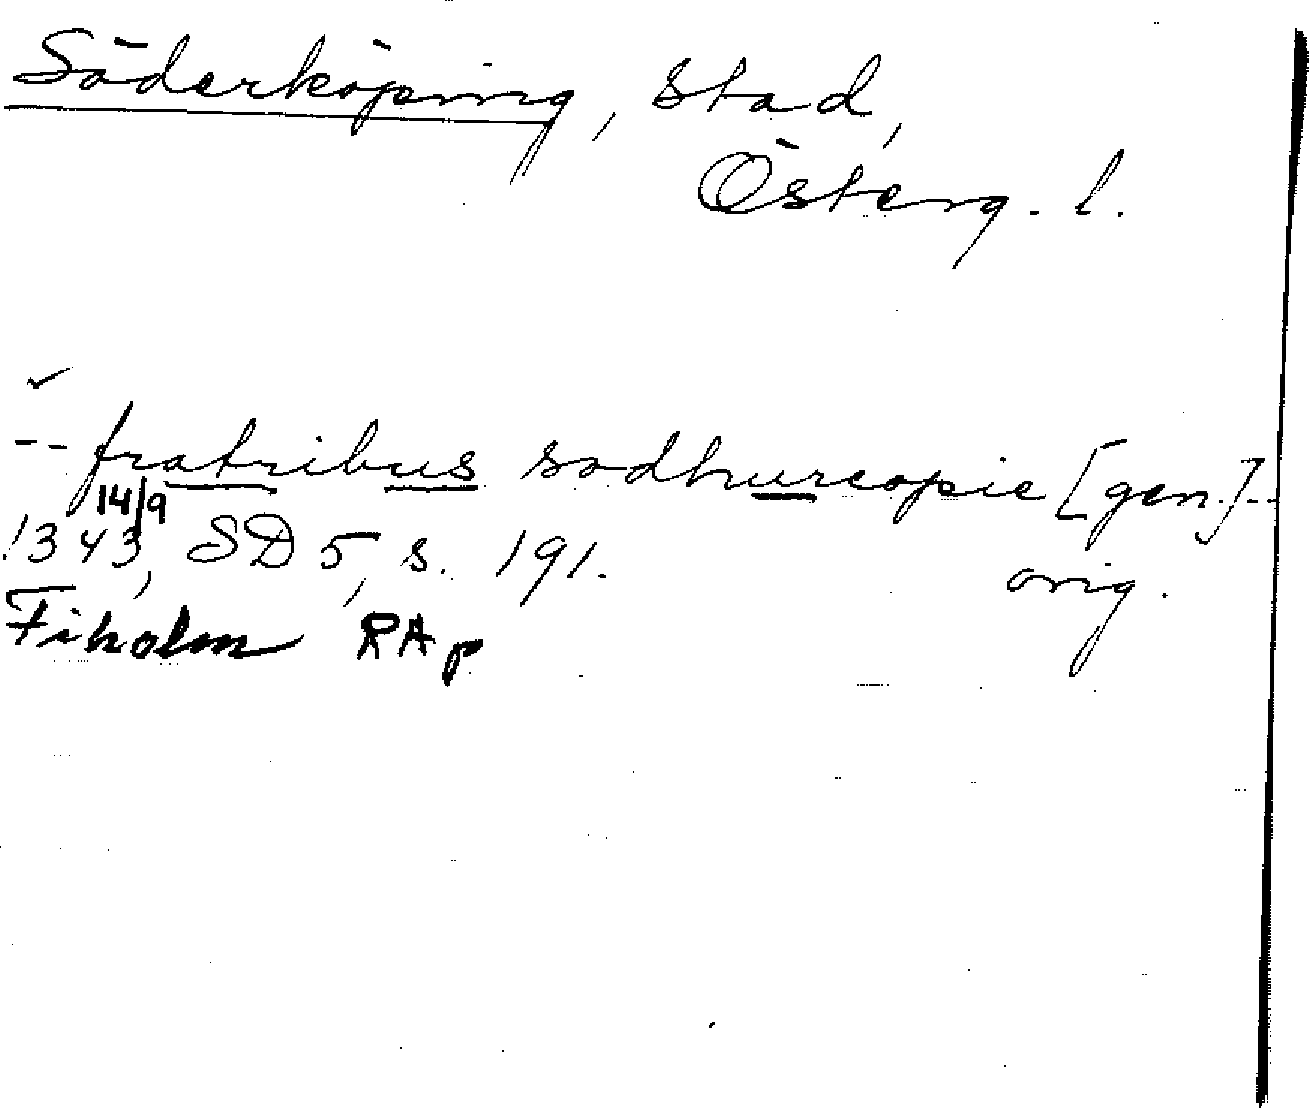 Söderköping, stad,
Österg. l.
-- fratribus sodhurcopie [gen.] --
14/9
1343, SD 5, s. 191.
orig.
Fiholm RAp